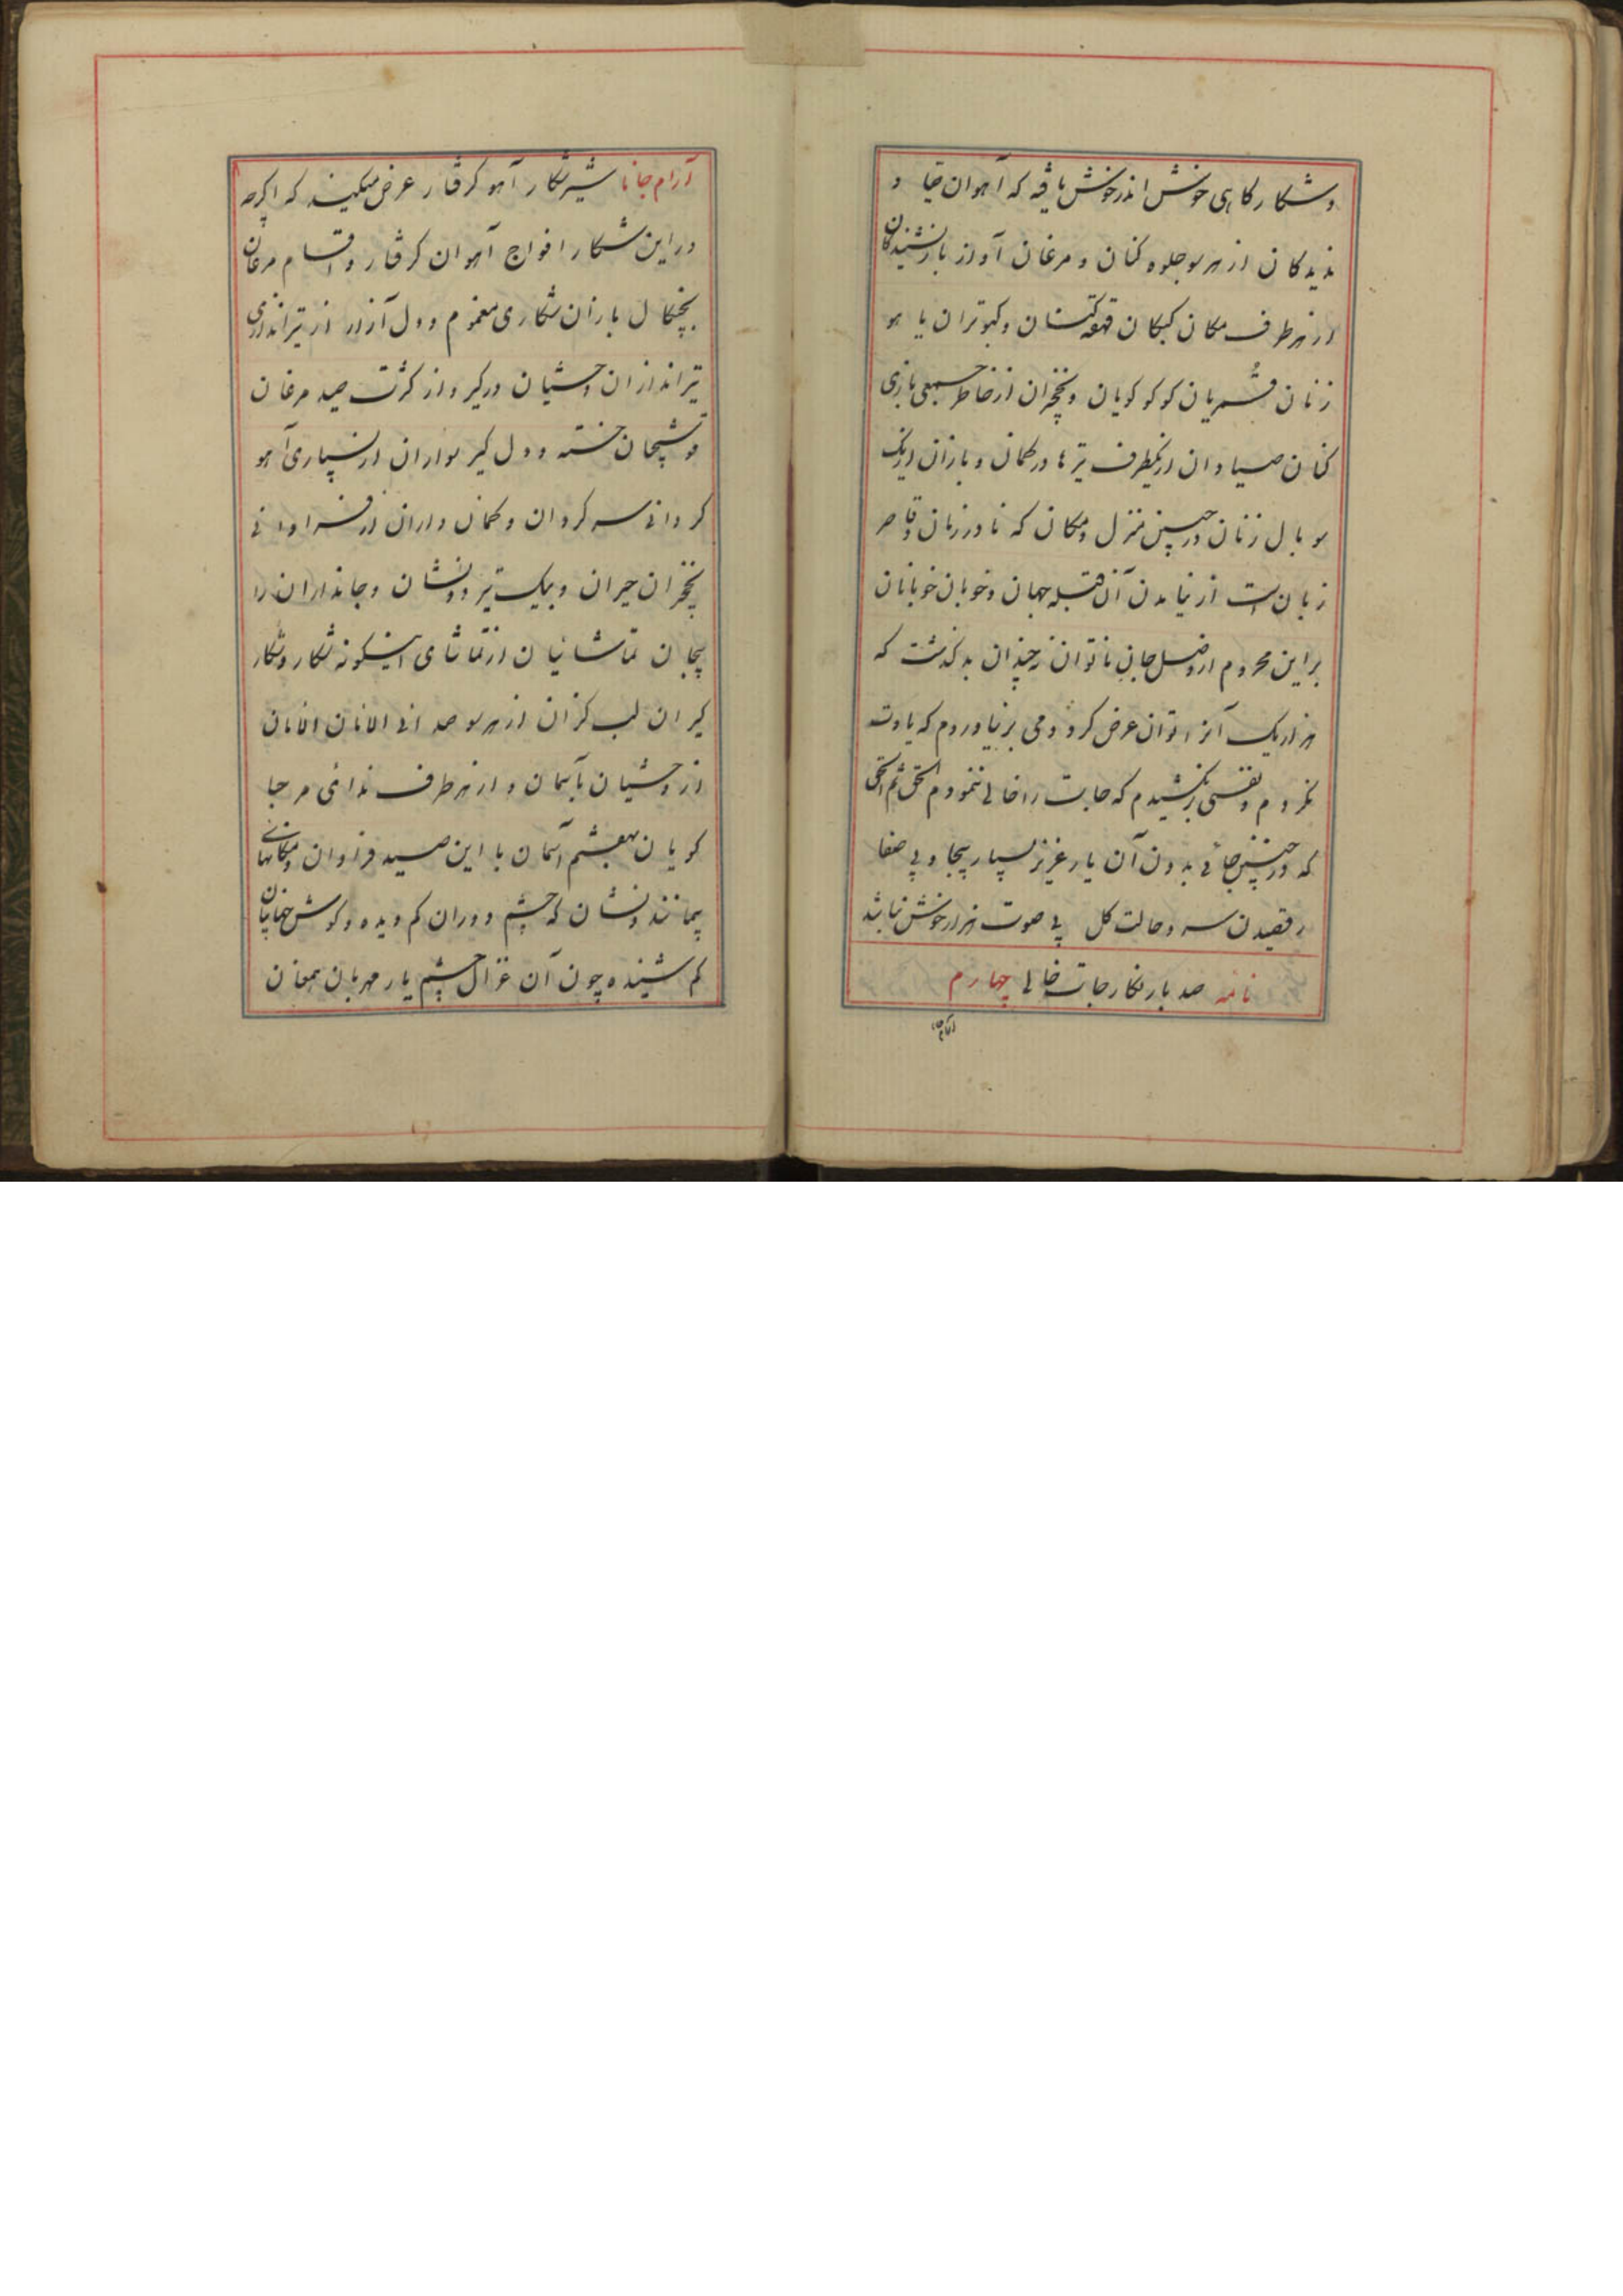 و شکارگاهی خوش اندر خوش یافته که آهوان جفا و
ندیدگان از هر سو جلوه کنان و مرغان آواز باز نشنیدگان
از هر طرف مکان کبکان قهقهه کنان و کبوتران یا هو
زنان قُمریان کوکو گویان و نخچیران از خاطر جمعی بازی
کنان صیادان از یکطرف تیرها در کمان و بازان از یک
سو بال زنان در چنین منزل و مکان که نادر زمان و قاصر
زبان است از نیامدن آن قبله جهان و خوبان خوبانان
بر این محروم از وصل جان ناتوان نه چندان بد گذشت که
هزار یک آنرا توان عرض کرد و دمی بر نیاوردم که یادت
نکردم و نفسی نکشیدم که جایت را خالی ننمودم الحق ثم الحق
که در چنین جائی بدون آن یار عزیز بسیار بیجا و بی صفا
رقصیدن سرو و حالت گل بی صوت هزار خوش نباشد
نامه صد بار نگار جایت خالی چهارم
آرام
آرام جانا شیر شکار آهو گرفتار عرض میکند که اگرچه
در این شکار افواج آهوان گرفتار و اقسام مرغان
بچنگال بازان شکاری مغموم و دل آزار از تیراندازی
تیراندازان وحشیان درگیر و از کثرت صید مرغان
قوشچیان خسته و دل گیر سواران از بسیاری آهو
گردانی سرگردان و کمان داران از فراوانی
نخچیران حیران و بیک تیر دو نشان و جانداران را
بیجان تماشائیان از تماشای اینگونه شکار و شکار
گیران لب گزان از هر سو صدای الامان الامان
از وحشیان بآسمان و از هر طرف ندای مرحبا
گویان بهفتم آسمان با این صید فراوان و مکانهای
بیمانند و نشان که چشم دوران کم دیده و گوش جهانیان
کم شنیده چون آن غزال چشم یار مهربان همعنان